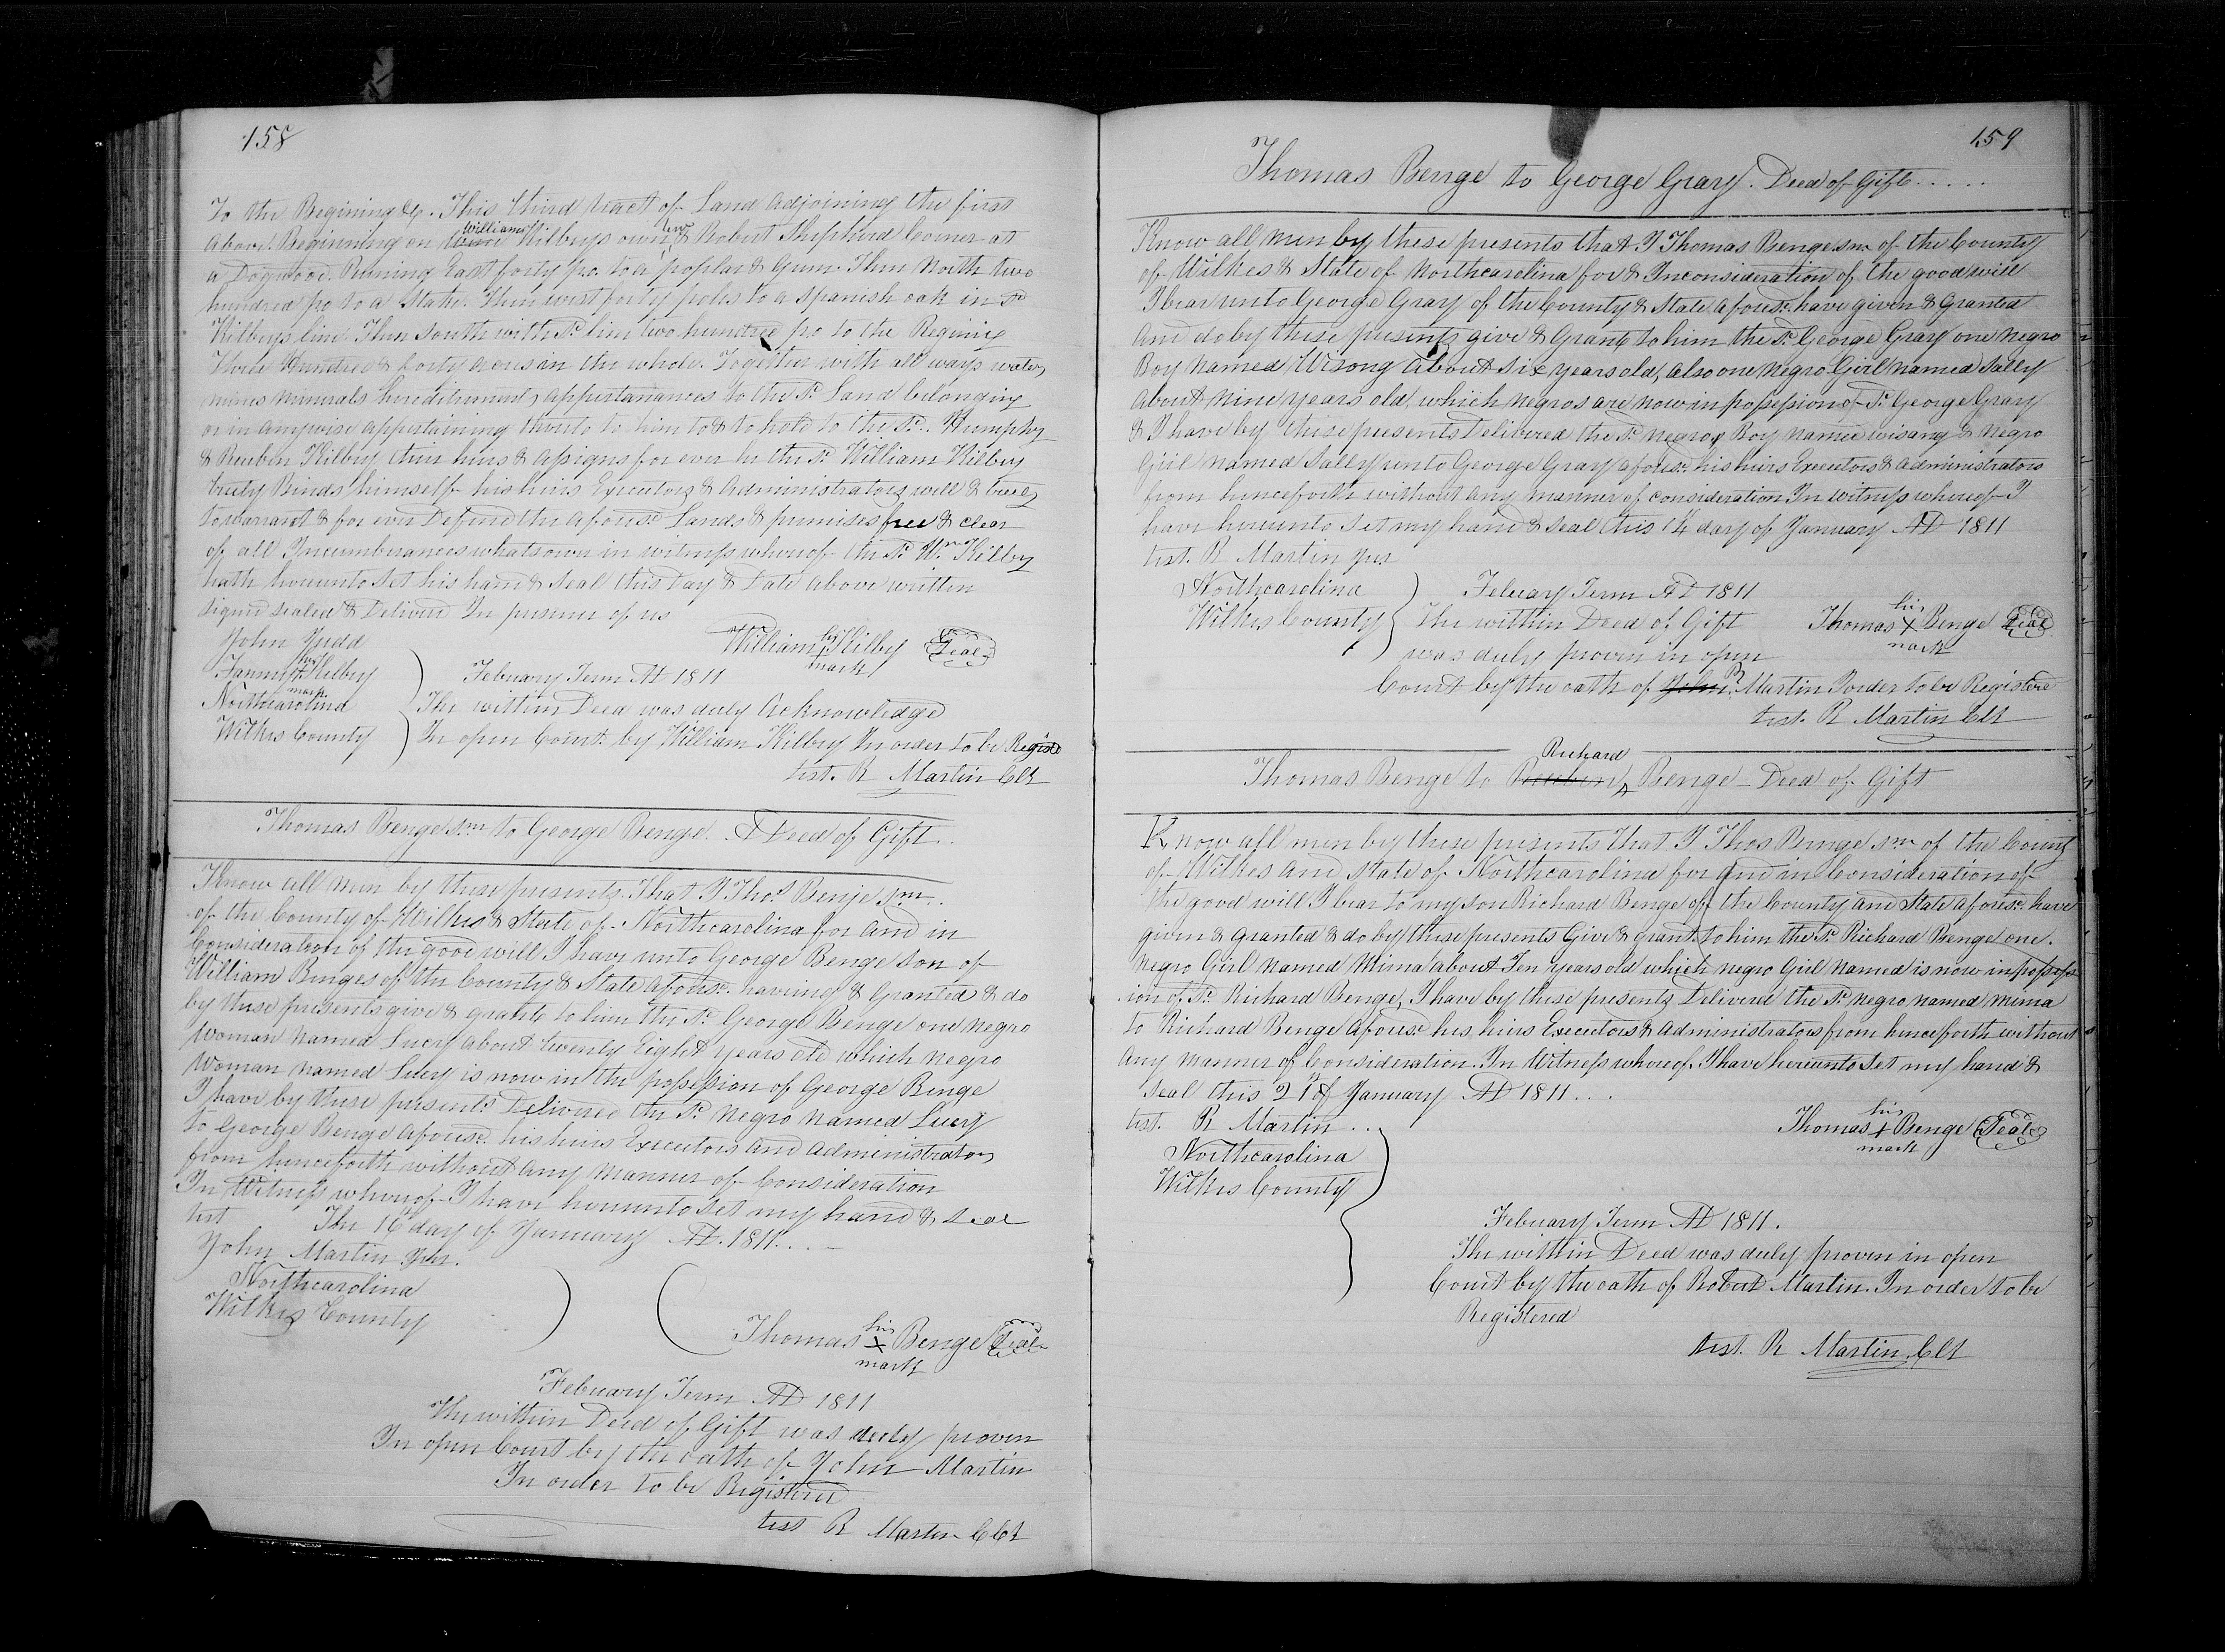 158
To the Begining &c. This third tract of Land Adjoining the first
Above. Beginning on Williams Kilbys own line & Robert Shepherd Corner at
a Dogwood. Running East forty po. to a poplar & Gum. Then North two
hundred po to a Stake. Then west forty poles to a spanish oak in sd
Kilbys line Then South with sd line two hundred po to the Begining
Three Hundred & forty acres in the whole. Together with all ways waters
mines minerals hereditiments appertanances to the sd Land belonging
or in anywise appertaining thereto to him to & to hold to the sd. Humphry
& Reuben Kilby thier heirs & assigns for ever he the sd William Kilby
truly Binds himself his heirs Executors & Administrators well & truly
to warrant & for ever Defend the aforesd Lands & premises free & clear
of all Incumberances whatsoever in witness whereof the sd Wm Kilby
hath hereunto set his hand & seal this Day & Date above written
Signed sealed & Deliverd In presence of us
John Judd
William his mark Kilby Seal
Kilby mark
Febuary Term AD 1811
Northcarolina
Wilkes County
The within Deed was duly Acknowledge
In open Court by William Kilby In order to be Registd
test. R Martin Clt
Thomas Benge snr to George Benge. A Deed of Gift..
Know all men by these presents. That I Thos Benje snr.
of the County of Wilkes & State of Northcarolina for and in
Consideration of the good will I have unto George Benge son of
William Benges of the County & State aforesd. having & Granted & do
by these presents give & grant to him the sd George Benge one negro
Woman named Lucy about twenty Eight years old which negro
Woman named Lucy is now in the possession of George Benge
I have by these presents Delivered the sd negro named Lucy
to George Benge aforesd. his heirs Executors and Administrators
from henceforth without any manner of Consideration
In Witness whereof I have hereunto set my hand & seal
test The 16 day of January AD. 1811...
John Martin Jur.
Northcarolina
Wilkes County
Thomas his X mark Benge Seal
Febuary Term AD 1811
The within Deed of Gift was duly proven
In open Court by the oath of John Martin
In order to be Registered
test R Martin Clt
159
Thomas Benge to George Gray. Deed of Gift.....
Know all men by these presents that I Thomas Benge snr of the County
of Wilkes & State of Northcarolina for & Inconsideration of the good will
I bear unto George Gray of the County & State aforesd. have given & Granted
And do by these presents give & Grant to him the sd George Gray one negro
Boy named Wisong About six years old, also one negro Girl named Sally
About nine years old, which negros are now in possession of sd George Gray
& I have by these presents Delivered the sd negro Boy named wisang & negro
Girl named Sally unto George Gray aforesd. his heirs Executors & administrators
from henceforth without any manner of consideration In witness whereof I
have hereunto set my hand & seal this 14 day of January AD 1811
test. R Martin Jur
Northcarolina
Wilkes County
Febuary Term AD 1811
The within Deed of Gift
Thomas his X mark Benge Seal
was duly proven in open
Court by the oath of John R Martin Iorder to be Registerd
test. R Martin Clt
Thomas Benge to Reuben Richard Benge - Deed of Gift
Know all men by these presents that I Thos Benge snr of the County
of Wilkes and State of Northcarolina for and in Consideration of
the good will I bear to my son Richard Benge of the County and State aforesd. have
given & granted & do by these presents Give & grant to him the sd Richard Benge one.
Negro Girl named Mima about Ten years old which negro Girl named is now in possess
ion of sd Richard Benge, I have by these presents Deliverd the sd negro named mima
to Richard Benge aforesd his heirs Executors & Administrators from henceforth without
any manner of Consideration. In Witness whereof I have hereunto set my hand &
seal this 21 of January AD 1811...
test. R Martin..
Thomas his X mark Benge Seal
Northcarolina
Wilkes County
Febuary Term AD 1811.
The within Deed was duly proven in open
Court by the oath of Robert Martin. In order to be
Registered
test. R Martin Clt